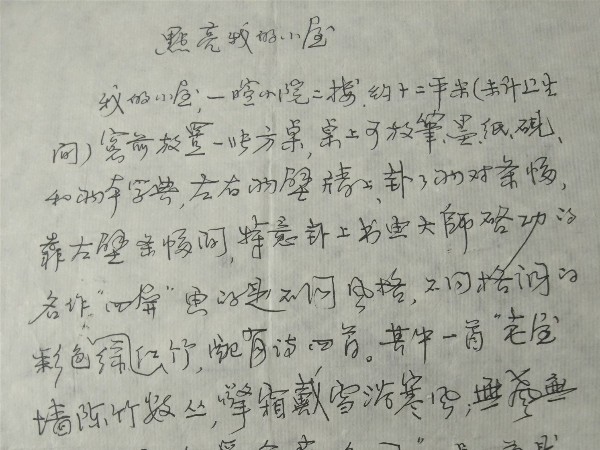 點亮我的小屋
我的小屋,一暄小院二楼,约十二平米(未计卫生
间)窗前放置一张方桌,桌上可放筆、墨、纸、砚、
和两本字典,左右两壁墙上,卦了两对条幅,
靠右壁条幅间,特意卦上书画大師 的
名作"四屏"画的是不同風格,不同格调的
彩色 竹,配有诗四首。其中一首"老屋
墙 竹数丛,擎霜戴雪 寒风,無 無